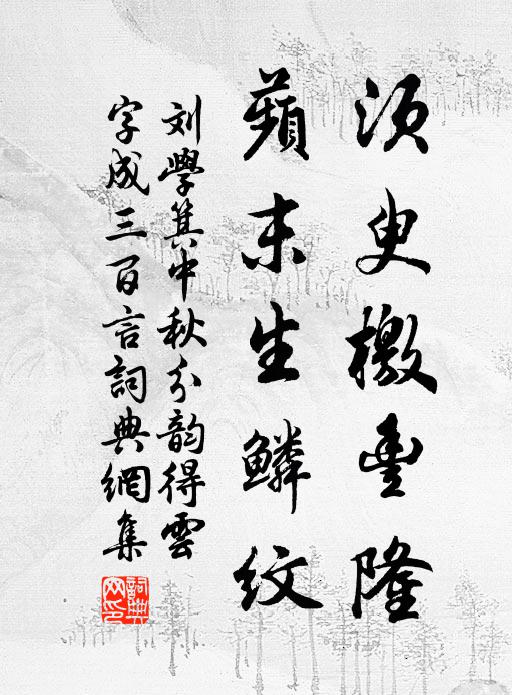 须臾檄丰隆
蘋末生鳞纹
刘学箕中秋分韵得云
字成三百言词典网集
词典网印